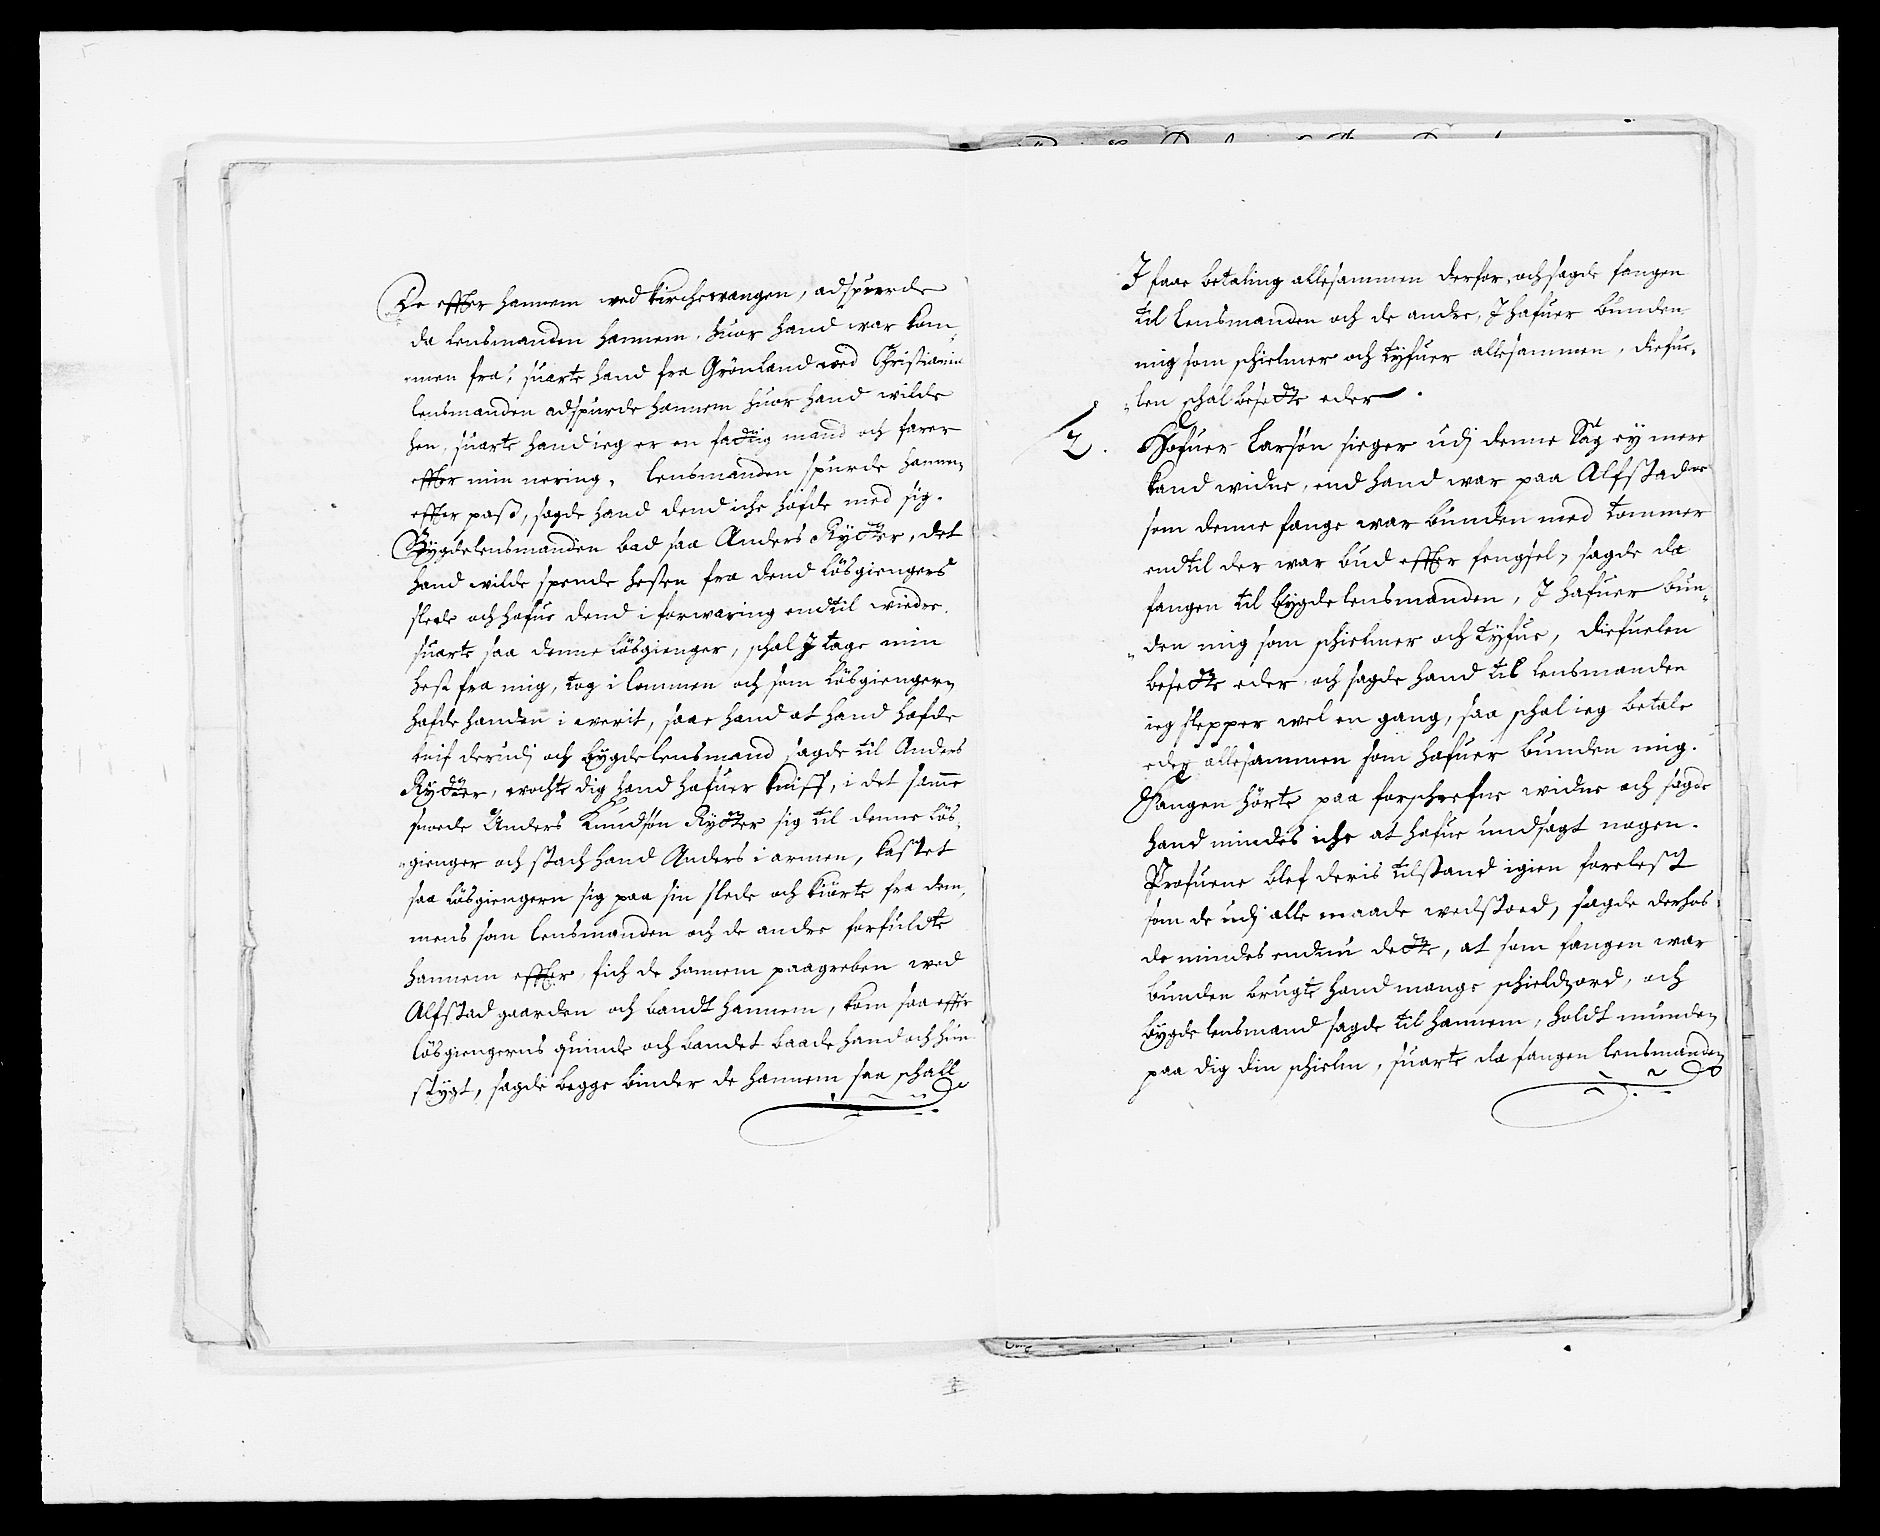 De effter hannem ved Kircherangen, adspuurde
da lensmanden hannem, huor hand war kom-
-men fra, suarte hand fra Grönland ved Christiania
lensmanden adspurde hannem huor hand wilde
hen, suarte hand ieg er en fattiig mand och farer
effter min nering, lensmanden spurde hannem
effter pass, sagde hand dend iche hafde med sig.
Bygdelensmanden bad saa Anders Rytter, det
hand wilde spende hesten fra dend lösgiengers
slede och hafue dend i forwaring endtil wieder,
suarte saa denne lösgienger, schal I tage min
hest fra mig, tog i lommen och som lösgiengeren
hafde handen i werit, saae hand at hand hafde
knif derudj och bygdelensmand sagde til Anders
Rytter, wochte dig hand hafuer kniff, i det samme
snoede Anders Knudsön Rytter sig til denne lös-
-gienger och stach hand Anders i armen, kastet
saa lösgiengern sig paa sin slede och kiörte fra dem,
mens som lensmanden och de andre forfuldte
hannem effter, fich de hannem paagreben ved
Alfstad gaarden och bandt hannem, kom saa effter
lösgiengerns quinde och bandet baade hand och hun
stygt, sagde begge binder de hannem saa schall
I faae betaling allesammen derfor, och sagde fangen
til lensmanden och de andre, I hafuer bunden
mig som schielmer och tyfuer allesammen, diefue-
-len schal besette eder.
2. Hafuer Larsön sieger udj denne Sag ey mere
kand widne, end hand war paa Alfstader
som denne fange war bunden med tommer
endtil der war bud effter fengsel, sagde da
fangen til bygdelensmanden, I hafuer bun-
-den mig som schielmer och tyfue, diefuelen
besette eder och sagde hand til lensmanden
ieg slepper wel en gang, saa schal ieg betale
eder allesammen som hafuer bunden mig.
Fangen hörte paa forschrefne widne och sagde
hand mindes iche at hafue undsagt nogen.
Profuene blef deris tilstand igien forelest
som de udj alle maade wedstoed, sagde derhos
de mindes endnu dette, at som fangen war
bunden brugte hand mange schieldzord, och
bygdelensmand sagde til hannem, holdt munden
paa dig din schielm, suarte da fangen lensmanden